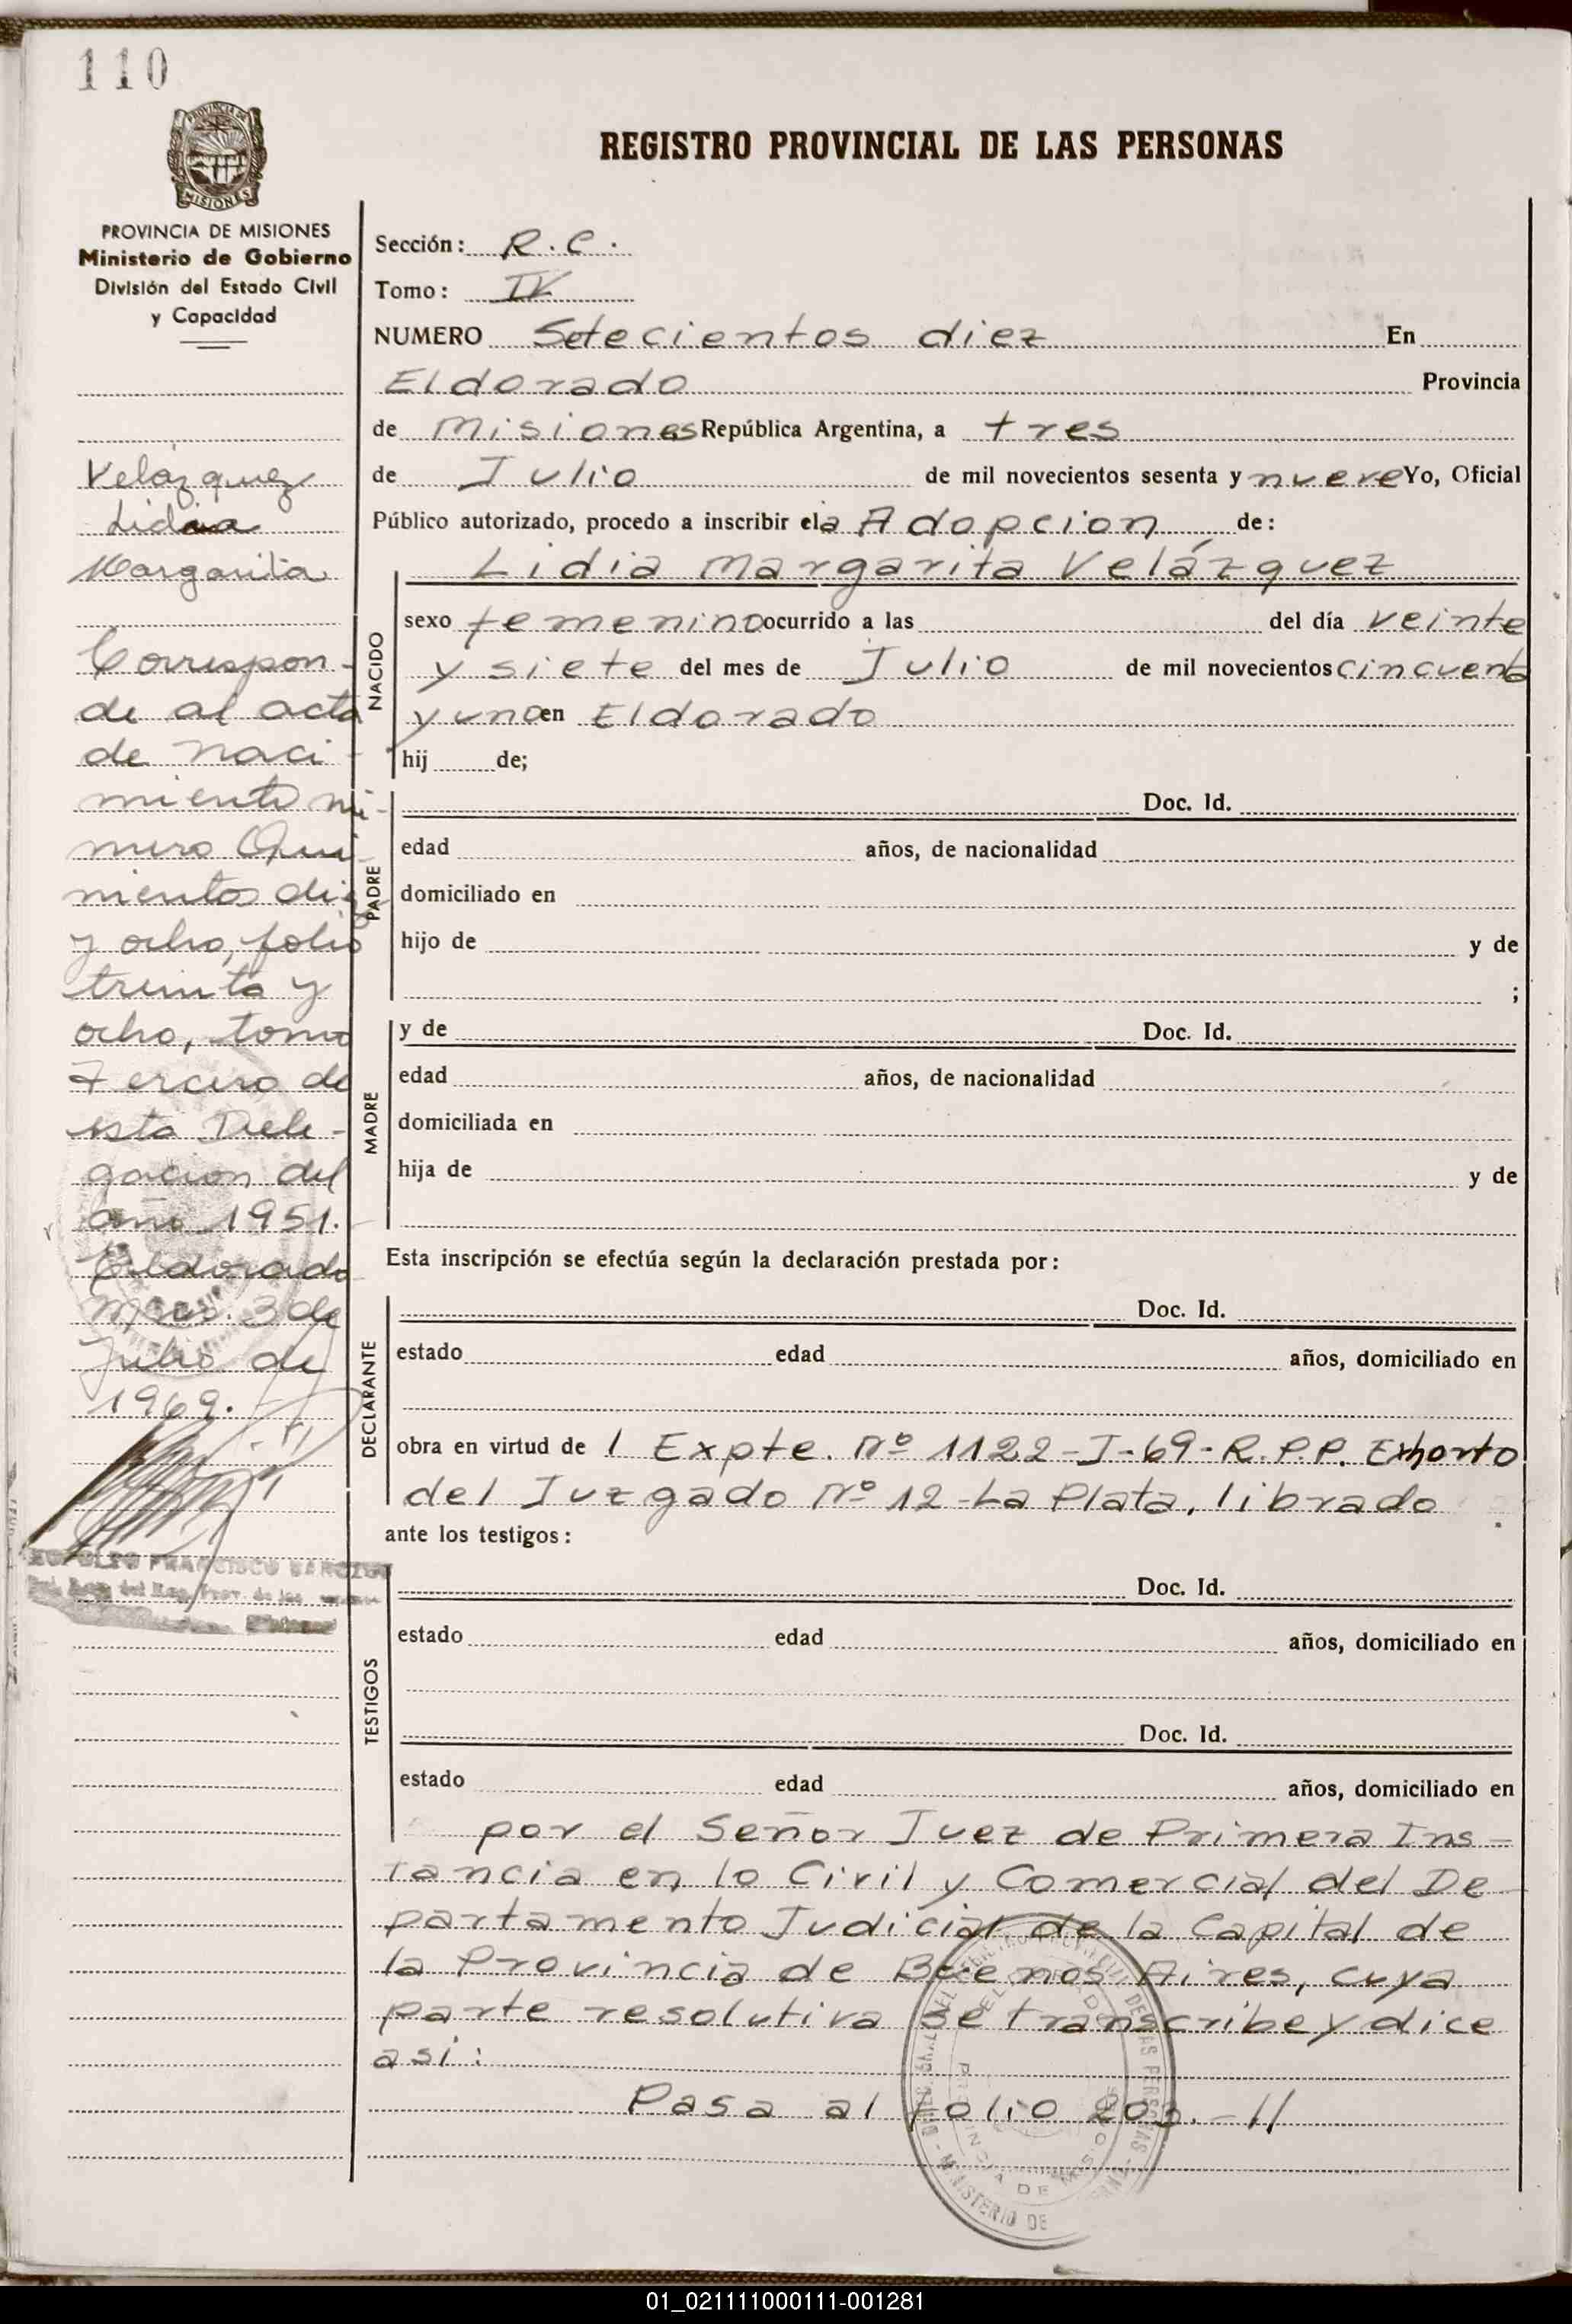 110
PROVINCIA DE MISIONES
PROVINCIA DE MISIONES
Ministerio de Gobierno
División del Estado Civil
y Capacidad
Velázquez
Lidia
Margarita
Correspon-
de al acta
de naci-
miento nú-
mero Qui-
nientos diez
y ocho, folio
treinta y
ocho, tomo
Tercero de
esta Dele-
gacion del
año 1951.
Eldorado
Mnes. 3 de
Julio de
1969.
FRANCISCO
REGISTRO PROVINCIAL DE LAS PERSONAS
Sección: R.C.
Tomo: IV
NUMERO Setecientos diez En
Eldorado Provincia
de Misiones República Argentina, a tres
de Julio de mil novecientos sesenta y nueve Yo, Oficial
Público autorizado, procedo a inscribir ela Adopcion de:
NACIDO
Lidia Margarita Velázquez
sexo femenino ocurrido a las del día veinte
y siete del mes de Julio de mil novecientos cincuenta
y uno en Eldorado
hij de;
PADRE
Doc. Id.
edad años, de nacionalidad
domiciliado en
hijo de y de
;
MADRE
y de Doc. Id.
edad años, de nacionalidad
domiciliada en
hija de y de
Esta inscripción se efectúa según la declaración prestada por:
DECLARANTE
Doc. Id.
estado edad años, domiciliado en
obra en virtud de l Expte. Nº 1122-I-69-R.P.P. Exhorto
del Juzgado Nº 12-La Plata, librado
ante los testigos:
TESTIGOS
Doc. Id.
estado edad años, domiciliado en
Doc. Id.
estado edad años, domiciliado en
por el Señor Juez de Primera Ins-
tancia en lo Civil y Comercial del De-
partamento Judicial de la Capital de
la Provincia de Buenos Aires, cuya
parte resolutiva se transcribe y dice
asi:
Pasa al folio 203.-//
ELDORADO
PROVINCIA DE MISIONES
MINISTERIO DE
01_021111000111-001281